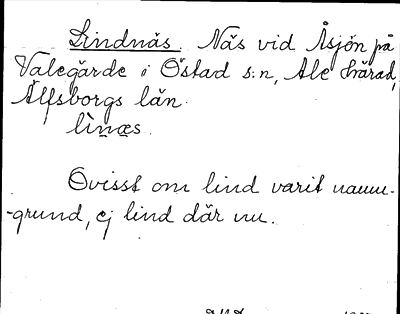 Lindnäs. Näs vid Åsjön på
Valegärde i Östad s:n, Ale härad,
Älfsborgs län.
lìnæs.
Ovisst om lind varit namn-
-grund, ej lind där nu.